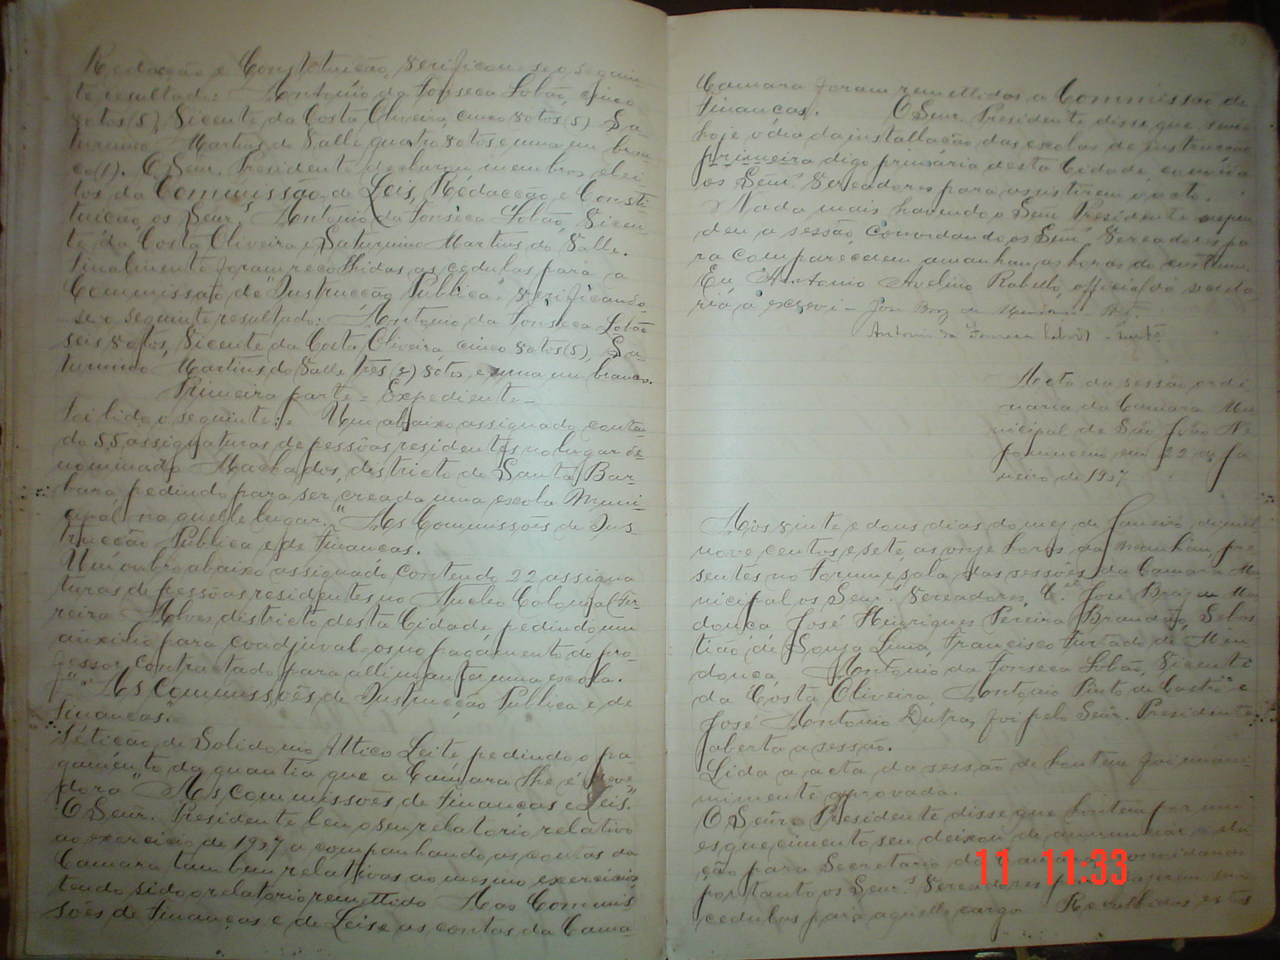 Redacção e Constituição, verificou-se o seguin-
te resultado: Antonio da Fonseca Lobão, cinco
votos (5), Vicente da Costa Oliveira, cinco votos (5) Sa-
turnino Martins do Valle quatro votos e uma em bran-
co (1). O Senr. Presidente declarou membros elei-
tos da Commissão de Leis, Redacção e Consti-
tuição, os Senr.s Antonio da Fonseca Lobão, Vicen-
te da Costa Oliveira e Saturnino Martins do Valle.
Finalmente foram recolhidas as cedulas para a
Commissão de "Instrucção Publica" verificando-
se o seguinte resultado: Antonio da Fonseca Lobão
seis votos, Vicente da Costa Oliveira, cinco votos (5), Sa-
turnino Martins do Valle tres votos e uma em branco.
Primeira parte = Expediente =
Foi lido o seguinte: Um abaixo assignado conten-
do 55 assignaturas de pessôas residentes no lugar de-
nominado Machados, districto de Santa Bar-
bara pedindo para ser creada uma escola Muni-
cipal na quelle lugar. "As Commissões de Ins-
trucção Publica e de Finanças.
Um outro abaixo assignado contendo 22 assigna
turas de pessôas residentes no Nucleo Colonial Fer-
reira Alves districto desta Cidade, pedindo um
auxilio para coadjuval-os no pagamento do pro-
fessor contractado para alli manter uma escola.
"As Commissões de Instrucção Publica e de
Finanças".
Petição de Attico Leite pedindo o pa-
gamento da quantia que a Camara lhe é deve
dora "As Commissões de Finanças e Leis."
O Senr. Presidente leu o seu relatorio relativo
ao exercicio de 1907 acompanhando as contas da
Camara tambem relativas ao mesmo exercicio
tendo sido o relatorio remettido Aas Commis
sões de Finanças e de Leis e as contas da Cama-
Camara foram remettidas a Commissão de
Finanças. O Senr. Presidente disse que sendo
hoje o dia da installação das escolas de instrucção
primeira digo primaria desta Cidade, convida
os Senr.s Vereadores para assistirem o acto.
Nada mais havendo o Senr. Presidente suspen
deu a sessão, convidando os Senr.s Vereadores pa
ra comparecerem amanhan as horas do costume.
Eu Antonio Avelino Rabello, official da secreta
ria a escrevi - José Braz de Mendonça
Antonio da Fonseca Lobão
Acta da sessão ordi
naria da Camara Mu
nicipal de São João Ne
pomuceno em 22 de Ja
neiro de 1907
Aos vinte e dous dias do mez de Janeiro de mil
nove centos e sete, as onze horas da manhan, pre
sentes no Forum e sala das sessões da Camara Mu
nicipal os Senr.s Vereadores, José Braz de Men
donça José Henriques Pereira Brandão, Sebas
tião de Souza Lima, Francisco Furtado de Men
donça, Antonio da Fonseca Lobão, Vicente
da Costa Oliveira, Antonio Pinto de Castro e
José Antonio Dutra, foi pelo Senr. Presidente
aberta a sessão.
Lida a acta da sessão de hontem foi unani
nimimente aprovada.
O Senr. Presidente disse que hontem por um
esquecimento seu deixou de annunciar a elei
ção para Secretario da Camara convidando
portanto os Senr.s Vereadores
cedulas para aquelle cargo. Recolhidas estas
11 11:33